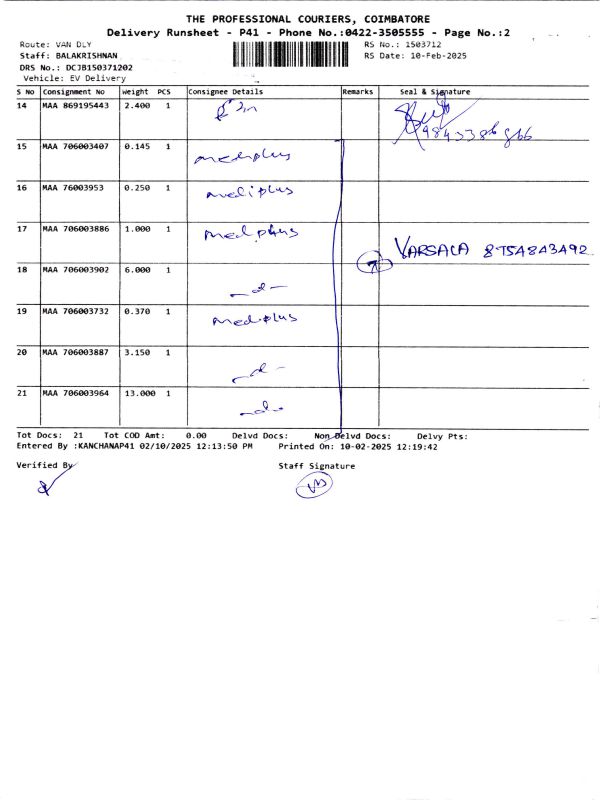 THE PROFESSIONAL COURIERS, COIMBATORE
Delivery Runsheet - P41 - Phone No.:0422-3505555 - Page No.:2
Route: VAN DLY RS No.: 1503712
Staff: BALAKRISHNAN RS Date: 10-Feb-2025
DRS No.: DCJB150371202
Vehicle: EV Delivery
S No Consignment No Weight PCS Consignee Details Remarks Seal & Signature
14 MAA 869195443 2.400 1
15 MAA 706003407 0.145 1 mediplus
16 MAA 76003953 0.250 1 mediplus
17 MAA 706003886 1.000 1 mediplus VARSALA 8754843492
18 MAA 706003902 6.000 1 -d-
19 MAA 706003732 0.370 1 mediplus
20 MAA 706003887 3.150 1 -d-
21 MAA 706003964 13.000 1 -d-
Tot Docs: 21 Tot COD Amt: 0.00 Delvd Docs: Non Delvd Docs: Delvy Pts:
Entered By :KANCHANAP41 02/10/2025 12:13:50 PM Printed On: 10-02-2025 12:19:42
Verified By Staff Signature